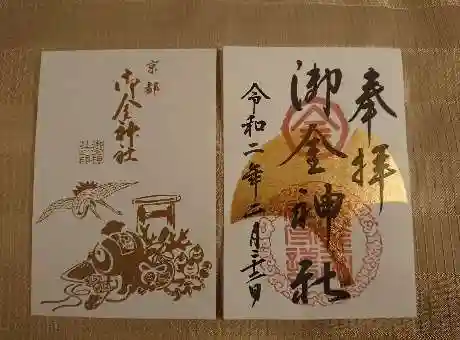 奉拝
御金神社
令和二年二月二十二日
京都
御金神社